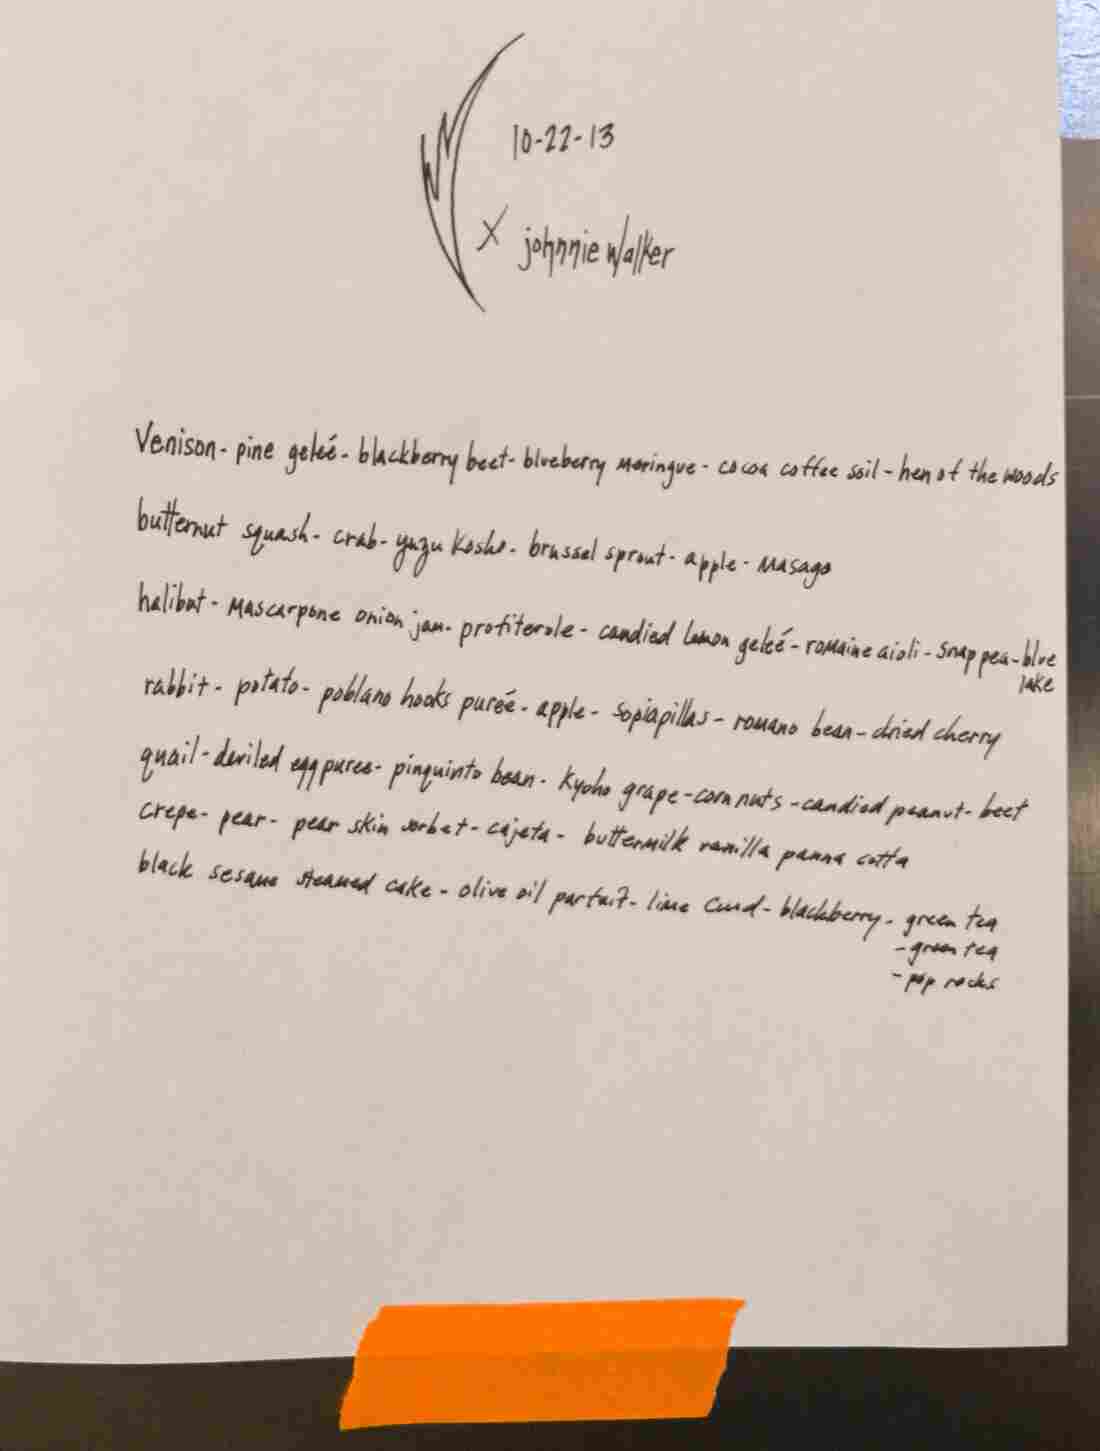 10-22-13
X johnnie walker
Venison - pine geleé - blackberry beet - blueberry meringue - cocoa coffee soil - hen of the woods
butternut squash - crab - yuzu kosho - brussel sprout - apple - masago
halibut - mascarpone onion jam - profiterole - candied lemon geleé - romaine aioli - snap pea - blue
lake
rabbit - potato - poblano hooks pureé - apple - sopiapillas - romano bean - dried cherry
quail - deviled egg puree - pinquinto bean - kyoho grape - corn nuts - candied peanut - beet
crepe - pear - pear skin sorbet - cajeta - buttermilk vanilla panna cotta
black sesame steamed cake - olive oil parfait - lime curd - blackberry - green tea
- green tea
- pop rocks